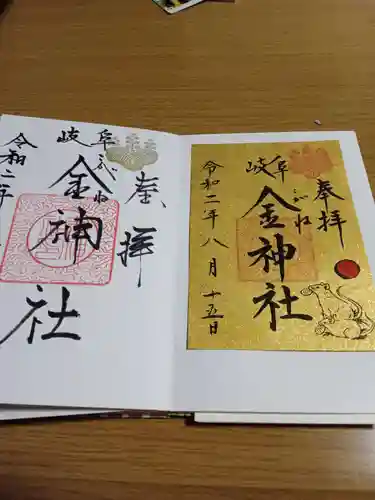 奉拝
岐阜
こがね
金神社
令和二年八月十五日
奉拝
岐阜
こがね
金神社
令和二年